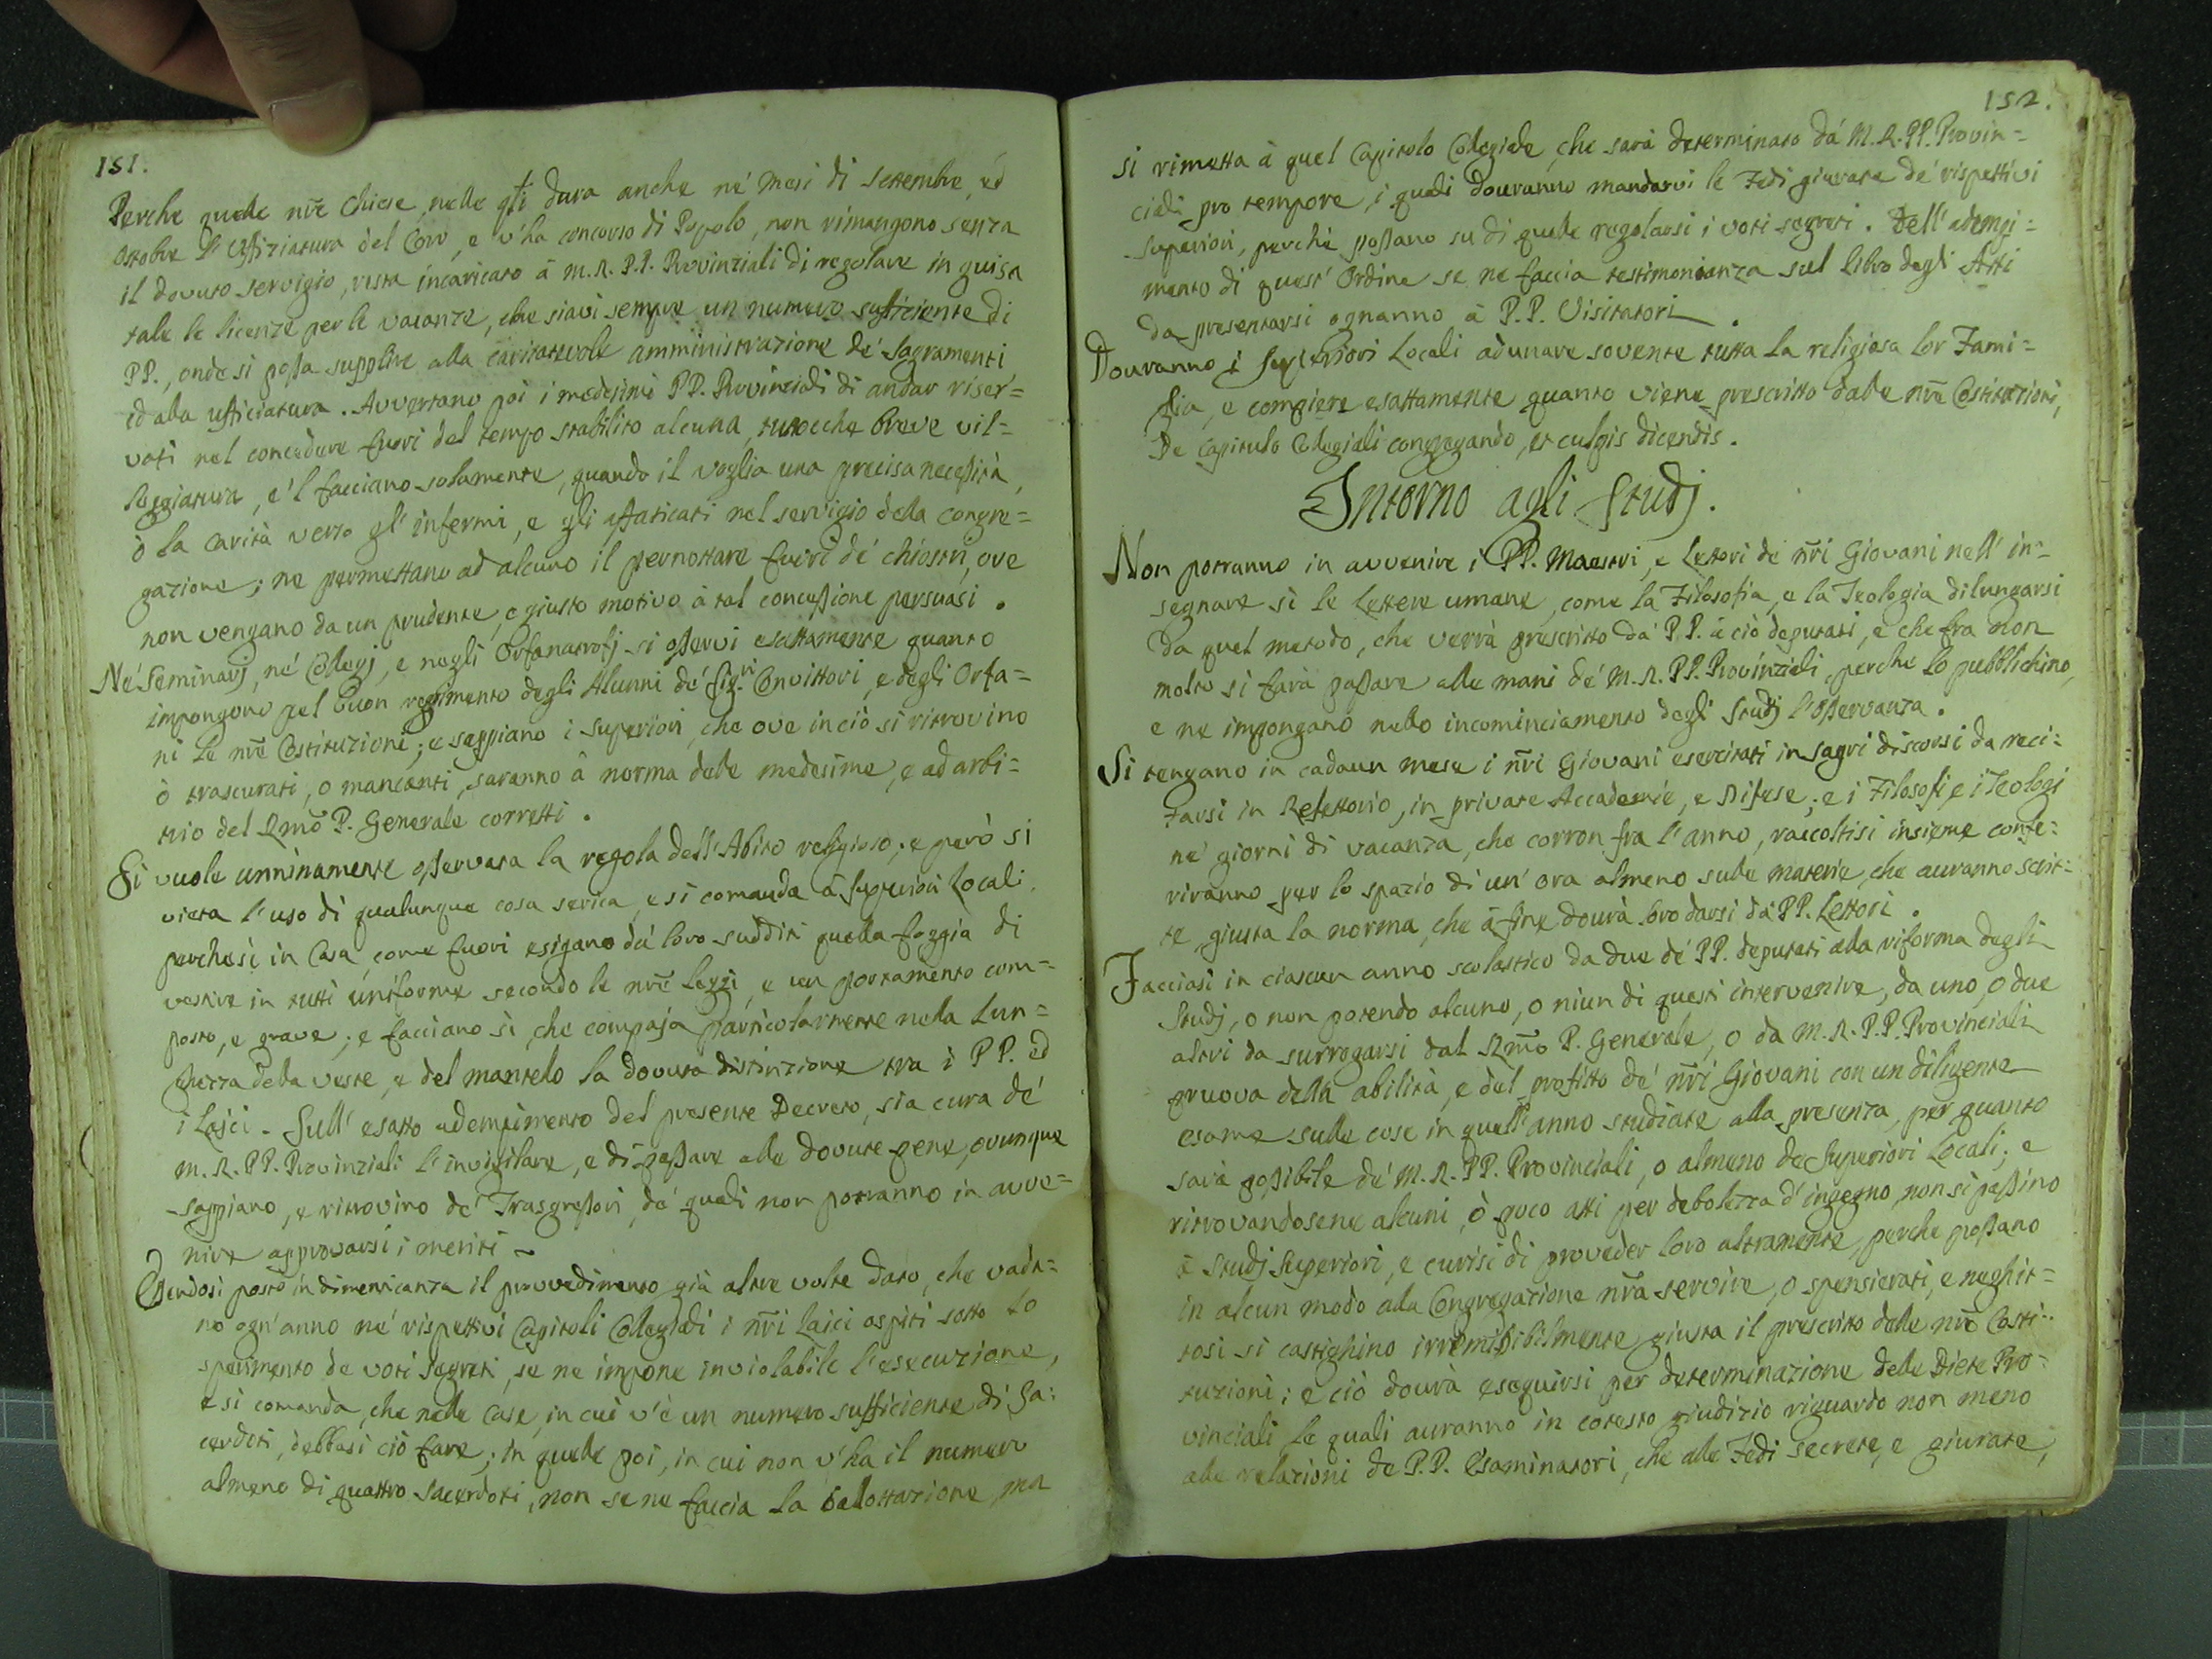 151.
Perche quelle nrẽ Chiese, nelle qli dura anche né Mesi di Settembre, ed
Ottobre l'Uffiziatura del Coro, e v'ha concorso di Popolo, non rimangono senza
il dovuto servigio, resta incaricato à M. R. P.P. Provinziali di regolare in guisa
tale le licenze per le vacanze, che siavi sempre un numero sufficiente di
PP., onde si possa supplire alla caritatevole amministrazione de' Sagramenti
ed alla ufficiatura. Avvertano poi i medesimi PP. Provinziali di andar riser=
vati nel concedere fuori del tempo stabilito alcuna, tuttocche breve vil=
leggiatura, e'l facciano solamente, quando il voglia una precisa necessità,
ò la carità verso gl'infermi, e gli affaticati nel servigio della Congre=
gazione; ne permettano ad alcuno il pernottare fuori dé chiostri, ove
non vengano da un prudente, e giusto motivo à tal concessione persuasi.
Né Seminarj, né Collegj, e negli Orfanatrofj si osservi esattamente quanto
impongono pel buon regimento degli Alunni dé Sig.ri Convittori, e degli Orfa=
ni le nrẽ Costituzioni; e sappiano i Superiori, che ove in ciò si ritrovino
ò trascurati, o mancanti, saranno à norma delle medesime, e ad arbi=
trio del Rmõ P. Generale corretti.
Si vuole onninamente osservata la regola dell'Abito religioso; e però si
vieta l'uso di qualunque cosa serica, e si comanda à Superiori Locali,
perche sì in Casa, come fuori esigano dà loro sudditi quella foggia di
vestire in tutti uniforme secondo le nrẽ leggi, e un portamento com=
posto, e grave; e facciano sì, che compaja particolarmente nella lun=
ghezza della veste, e del mantello la dovuta distinzione tra i PP. ed
i Laici. Sull'esatto adempimento del presente Decreto, sia cura dé
M. R. PP. Provinziali l'invigilare, e di passare alle dovute pene, ovunque
sappiano, e ritrovino de' Trasgressori, de' quali non potranno in avve=
nire approvarsi i meriti.
Essendosi posto in dimenticanza il provvedimento già altre volte dato, che vada=
no ogn'anno né rispettivi Capitoli Collegiali i nrĩ Laici ospiti sotto lo
sperimento de voti segreti, se ne impone inviolabile l'esecuzione,
e si comanda, che nelle Case, in cui v'è un numero sufficiente di Sa=
cerdoti, debbasi ciò fare; in quelle poi, in cui non v'ha il numero
almeno di quattro Sacerdoti, non se ne faccia la ballottazione, ma
152.
si rimetta à quel Capitolo Collegiale, che sarà determinato dá M. R. PP. Provin=
ciali pro tempore, i quali dovranno mandarvi le Fedi giurate de' rispettivi
Superiori, perchè possano su di quelle regolarsi i voti segreti. Dell'adempi=
mento di quest'Ordine se ne faccia testimonianza sul libro degli Atti
da presentarsi ognanno à P.P. Visitatori.
Douranno i Superiori Locali adunare sovente tutta la religiosa lor Fami=
glia, e compiere esattamente quanto viene prescritto dalle nrẽ Costituzioni,
De Capitulo Collegiali congregando, et culpis dicendis.
Intorno agli Studj.
Non potranno in avvenire i PP. Maestri, e Lettori de nrĩ Giovani nell'in=
segnare sì le Lettere umane, come la Filosofia, e la Teologia dilungarsi
da quel metodo, che verrà prescritto da' P.P. à ciò deputati, e che fra non
molto si farà passare alle mani dé M. R. PP. Provinziali, perche lo pubblichino,
e ne impongano nello incominciamento degli Studj l'osservanza.
Si tengano in cadaun mese i nrĩ Giovani esercitati in sagri discorsi da reci=
tarsi in Refettorio, in private Accademie, e Difese; e i Filosofi, e i Teologi
ne' giorni di vacanza, che corron fra l'anno, raccoltisi insieme confe=
riranno per lo spazio di un'ora almeno sulle materie, che auranno scrit=
te, giusta la norma, che à fine dourà loro darsi dà PP. Lettori.
Facciasi in ciascun anno scolastico da due dé PP. deputati alla riforma degli
Studj, o non potendo alcuno, o niun di questi intervenire, da uno, o due
altri da surrogarsi dal Rmõ P. Generale, o da M. R. P.P. Provinciali
pruova della abilità, e del profitto de' nrĩ Giovani con un diligente
esame sulle cose in quell'anno studiate alla presenza, per quanto
sarà possibile dé M. R. PP. Provinciali, o almeno de Superiori Locali; e
ritrovandosene alcuni, ò poco atti per debolezza d'ingegno, non si passino
à Studj Superiori, e curisi di proveder loro altramente, perche possano
in alcun modo alla Congregazione nrã servire, o spensierati, e neghit=
tosi si castighino irremissibilmente giusta il prescritto delle nrẽ Costi=
tuzioni; e ciò dourà eseguirsi per determinazione delle Diete Pro=
vinciali, le quali auranno in cotesto giudizio riguardo non meno
alle relazioni de P.P. Esaminatori, che alle Fedi secrete, e giurate,